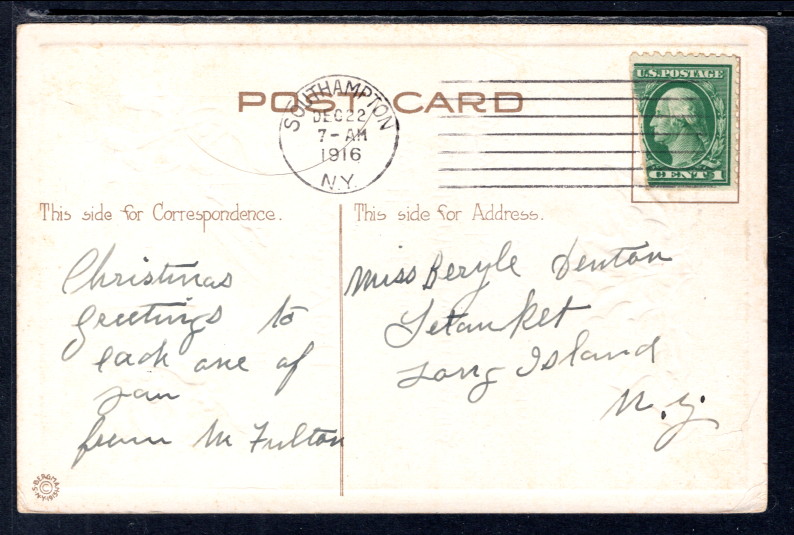 POST CARD
SOUTHAMPTON
DEC 22
7-AM
1916
N.Y.
U.S. POSTAGE
CENT 1
This side for Correspondence.
This side for Address.
Christmas
greetings to
each one of
you
from M Fulton
Miss Beryle Denton
Setauket
Long Island
N.Y.